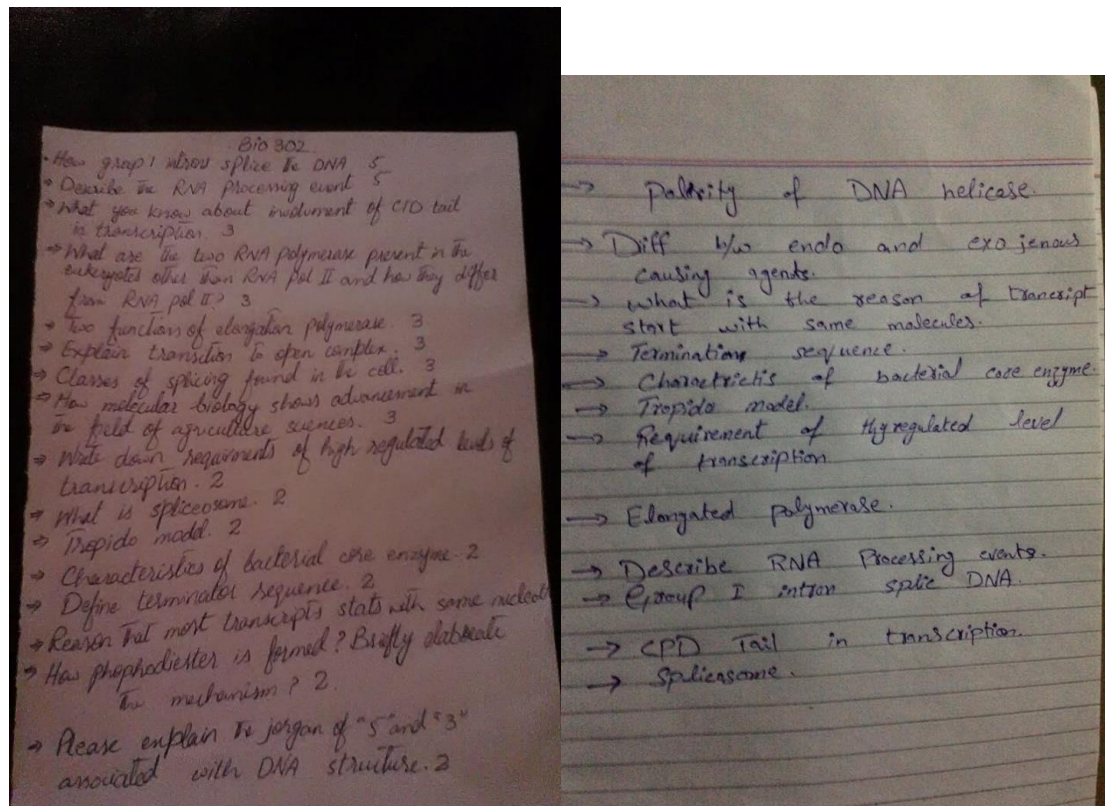 Bio 302
• How group 1 introns splice the DNA 5
→ Describe the RNA Processing event 5
→ What you know about involument of CTD tail
in transcription. 3
→ What are the two RNA polymerase present in the
eukaryotes other than RNA pol II and how they differ
from RNA pol II? 3
→ Two functions of elongation polymerase. 3
→ Explain transition to open complex. 3
→ Classes of splicing found in the cell. 3
→ How molecular biology shows advancement in
the field of agriculture sciences. 3
→ Write down requirments of high regulated levels of
transcription. 2
→ What is spliceosome. 2
→ Tropido model. 2
→ Characteristics of bacterial core enzyme. 2
→ Define terminator sequence. 2
→ Reason that most transcripts stats with same nucleoti
→ How phophodiester is formed? Briefly elaboeate
The mechanism? 2.
→ Please explain the jorgan of "5" and "3"
associated with DNA structure. 2
→ Polarity of DNA helicase.
→ Diff b/w endo and exo jenous
causing agents.
→ what is the reason of trancript
start with same molecules.
→ Termination sequence.
→ Charactrictis of bacterial core enzyme.
→ Tropido model.
→ Requirement of Hyregulated level
of transcription
→ Elongated polymerase.
→ Describe RNA Processing events.
→ Group I intron splic DNA.
→ CPD Tail in transcription.
→ Splicesome.